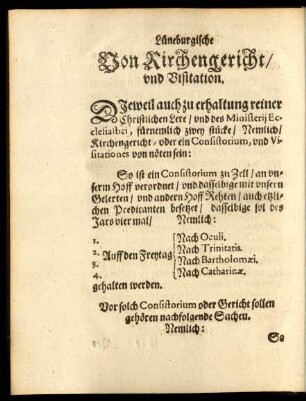 Lüneburgische
Von Kirchengericht/
vnd Visitation.
DJeweil auch zu erhaltung reiner
Christlichen Lere/ vnd des Ministerij Ec-
clesiastici, fürnemlich zwey stücke/ Nemlich/
Kirchengericht/ oder ein Consistorium, vnd Vi-
sitationes von nöten sein:
So ist ein Consistorium zu Zell/ an vn-
serm Hoff verordnet/ vnd dasselbige mit vnsern
Gelerten/ vnd andern Hoff Rehten/ auch etzli-
chen Predicanten besetzet/ dasselbige sol des
Jars vier mal/ Nemlich:
1. Nach Oculi.
2. Auff den Freytag Nach Trinitatis.
3. Nach Bartholomæi.
4. Nach Catharinæ.
gehalten werden.
Vor solch Consistorium oder Gericht sollen
gehören nachfolgende Sachen.
Nemlich:
So